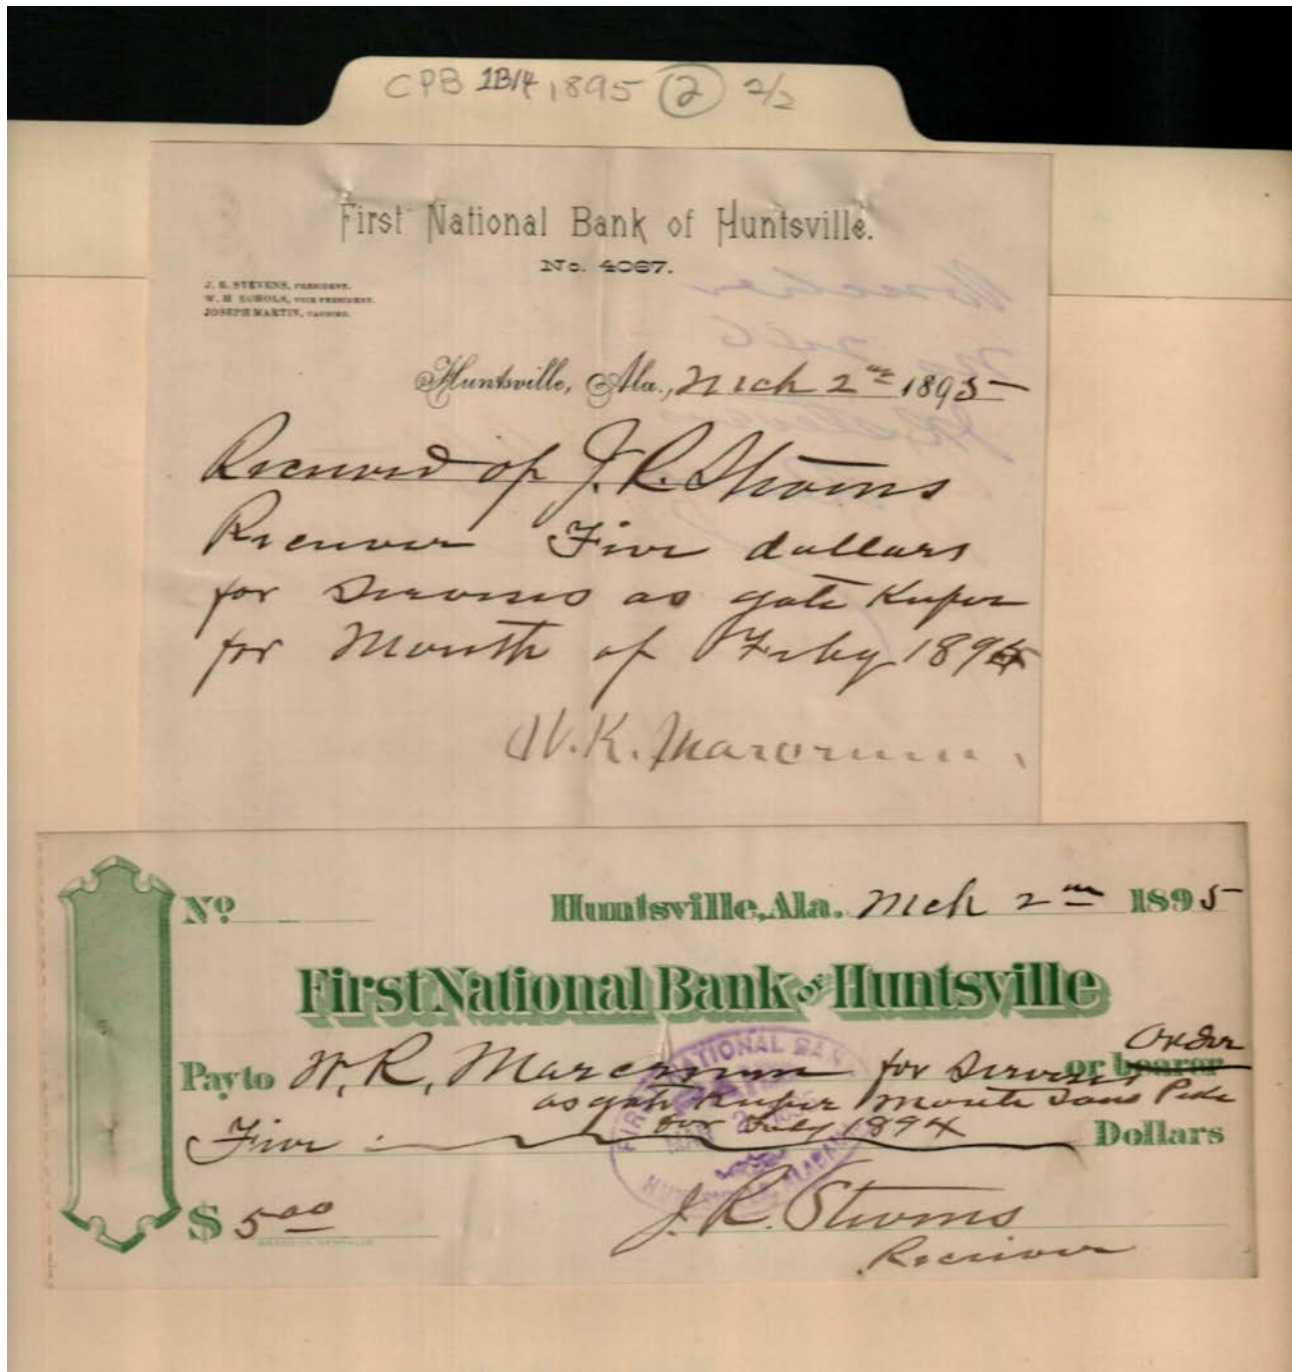 CPB 1B14 1895 (2) 2/2
First National Bank of Huntsville.
No. 4067.
J. R. STEVENS, PRESIDENT.
W. H. ECHOLS, VICE PRESIDENT.
JOSEPH MARTIN, CASHIER.
Huntsville, Ala., Mch 2nd 1895
Received of J. R. Stevens
Receiver Five dollars
for services as gate Keeper
for Month of Feby 1895
W. K. Marcrum.
No
Huntsville, Ala. Mch 2nd 1895
First National Bank of Huntsville
Order
Pay to W. R. Marcrum for Services or bearer
as gate Keeper Pike
for Feby 1894
Five Dollars
FIRST NATIONAL BANK
HUNTSVILLE, ALABAMA
$ 5 00
J. R. Stevens
Receiver